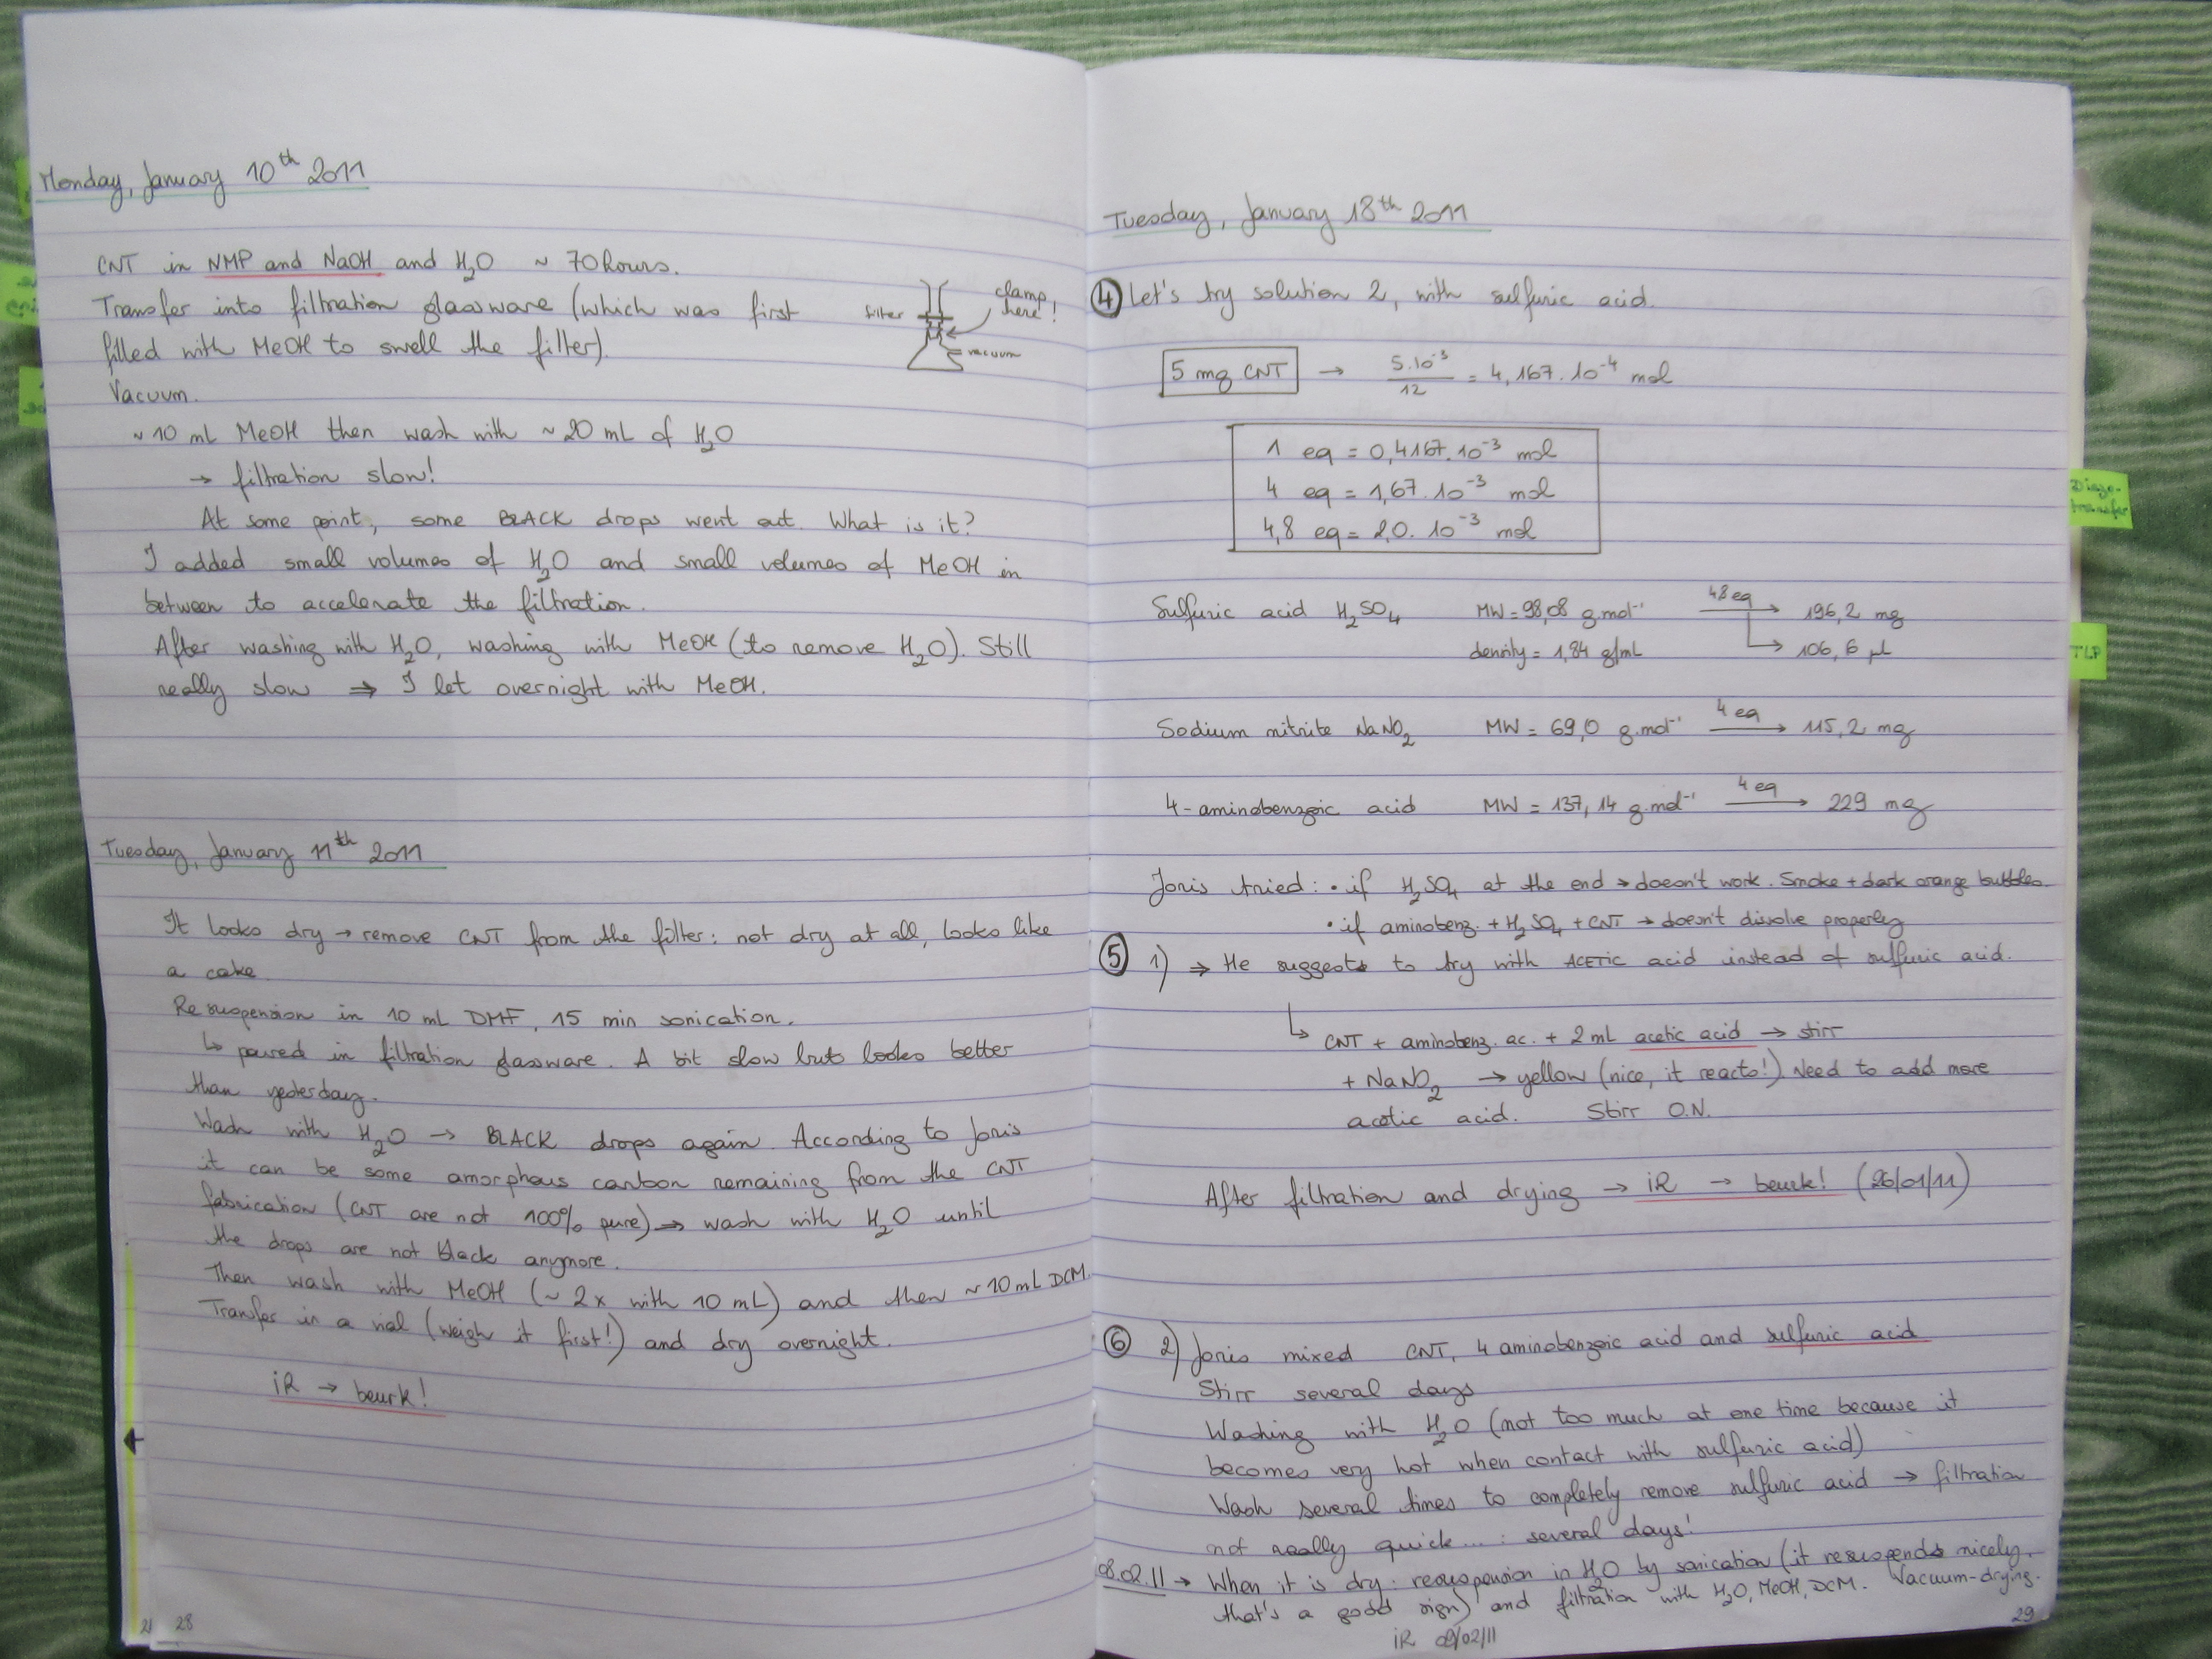 Monday, January 10th 2011
CNT in NMP and NaOH and H2O ~ 70 hours.
Transfer into filtration glassware (which was first
filled with MeOH to swell the filter).
filter
clamp here!
vacuum
Vacuum.
~ 10 mL MeOH then wash with ~ 20 mL of H2O
→ filtration slow!
At some point, some BLACK drops went out. What is it?
I added small volumes of H2O and small volumes of MeOH in
between to accelerate the filtration.
After washing with H2O, washing with MeOH (to remove H2O). Still
really slow ⇒ I let overnight with MeOH.
Tuesday, January 11th 2011
It looks dry → remove CNT from the filter: not dry at all, looks like
a cake.
Resuspension in 10 mL DMF, 15 min sonication.
↳ poured in filtration glassware. A bit slow but looks better
than yesterday.
Wash with H2O → BLACK drops again. According to Joris
it can be some amorphous carbon remaining from the CNT
fabrication (CNT are not 100% pure) → wash with H2O until
the drops are not black anymore.
Then wash with MeOH (~ 2x with 10 mL) and then ~ 10 mL DCM.
Transfer in a vial (weigh it first!) and dry overnight.
iR → beurk!
28
Tuesday, January 18th 2011
④ Let's try solution 2, with sulfuric acid.
5 mg CNT → 5.10-3 / 12 = 4,167.10-4 mol
1 eq = 0,4167.10-3 mol
4 eq = 1,67.10-3 mol
4,8 eq = 2,0.10-3 mol
Sulfuric acid H2SO4 MW = 98,08 g.mol-1 4,8 eq → 196,2 mg
density = 1,84 g/mL ↳ 106,6 µL
Sodium nitrite NaNO2 MW = 69,0 g.mol-1 4 eq → 115,2 mg
4-aminobenzoic acid MW = 137,14 g.mol-1 4 eq → 229 mg
Joris tried: • if H2SO4 at the end → doesn't work. Smoke + dark orange bubbles.
• if aminobenz. + H2SO4 + CNT → doesn't dissolve properly
⑤ 1) ⇒ He suggests to try with ACETIC acid instead of sulfuric acid.
↳ CNT + aminobenz. ac. + 2 mL acetic acid → stirr
+ NaNO2 → yellow (nice, it reacts!). Need to add more
acetic acid. Stirr O.N.
After filtration and drying → iR → beurk! (26/01/11)
⑥ 2) Joris mixed CNT, 4 aminobenzoic acid and sulfuric acid
Stirr several days
Washing with H2O (not too much at one time because it
becomes very hot when contact with sulfuric acid)
Wash several times to completely remove sulfuric acid → filtration
not really quick ... : several days!
08.02.11 → When it is dry: resuspension in H2O by sonication (it resuspends nicely,
that's a good sign) and filtration with H2O, MeOH, DCM. Vacuum-drying.
iR 09/02/11
29
Diazo-transfer
TLP